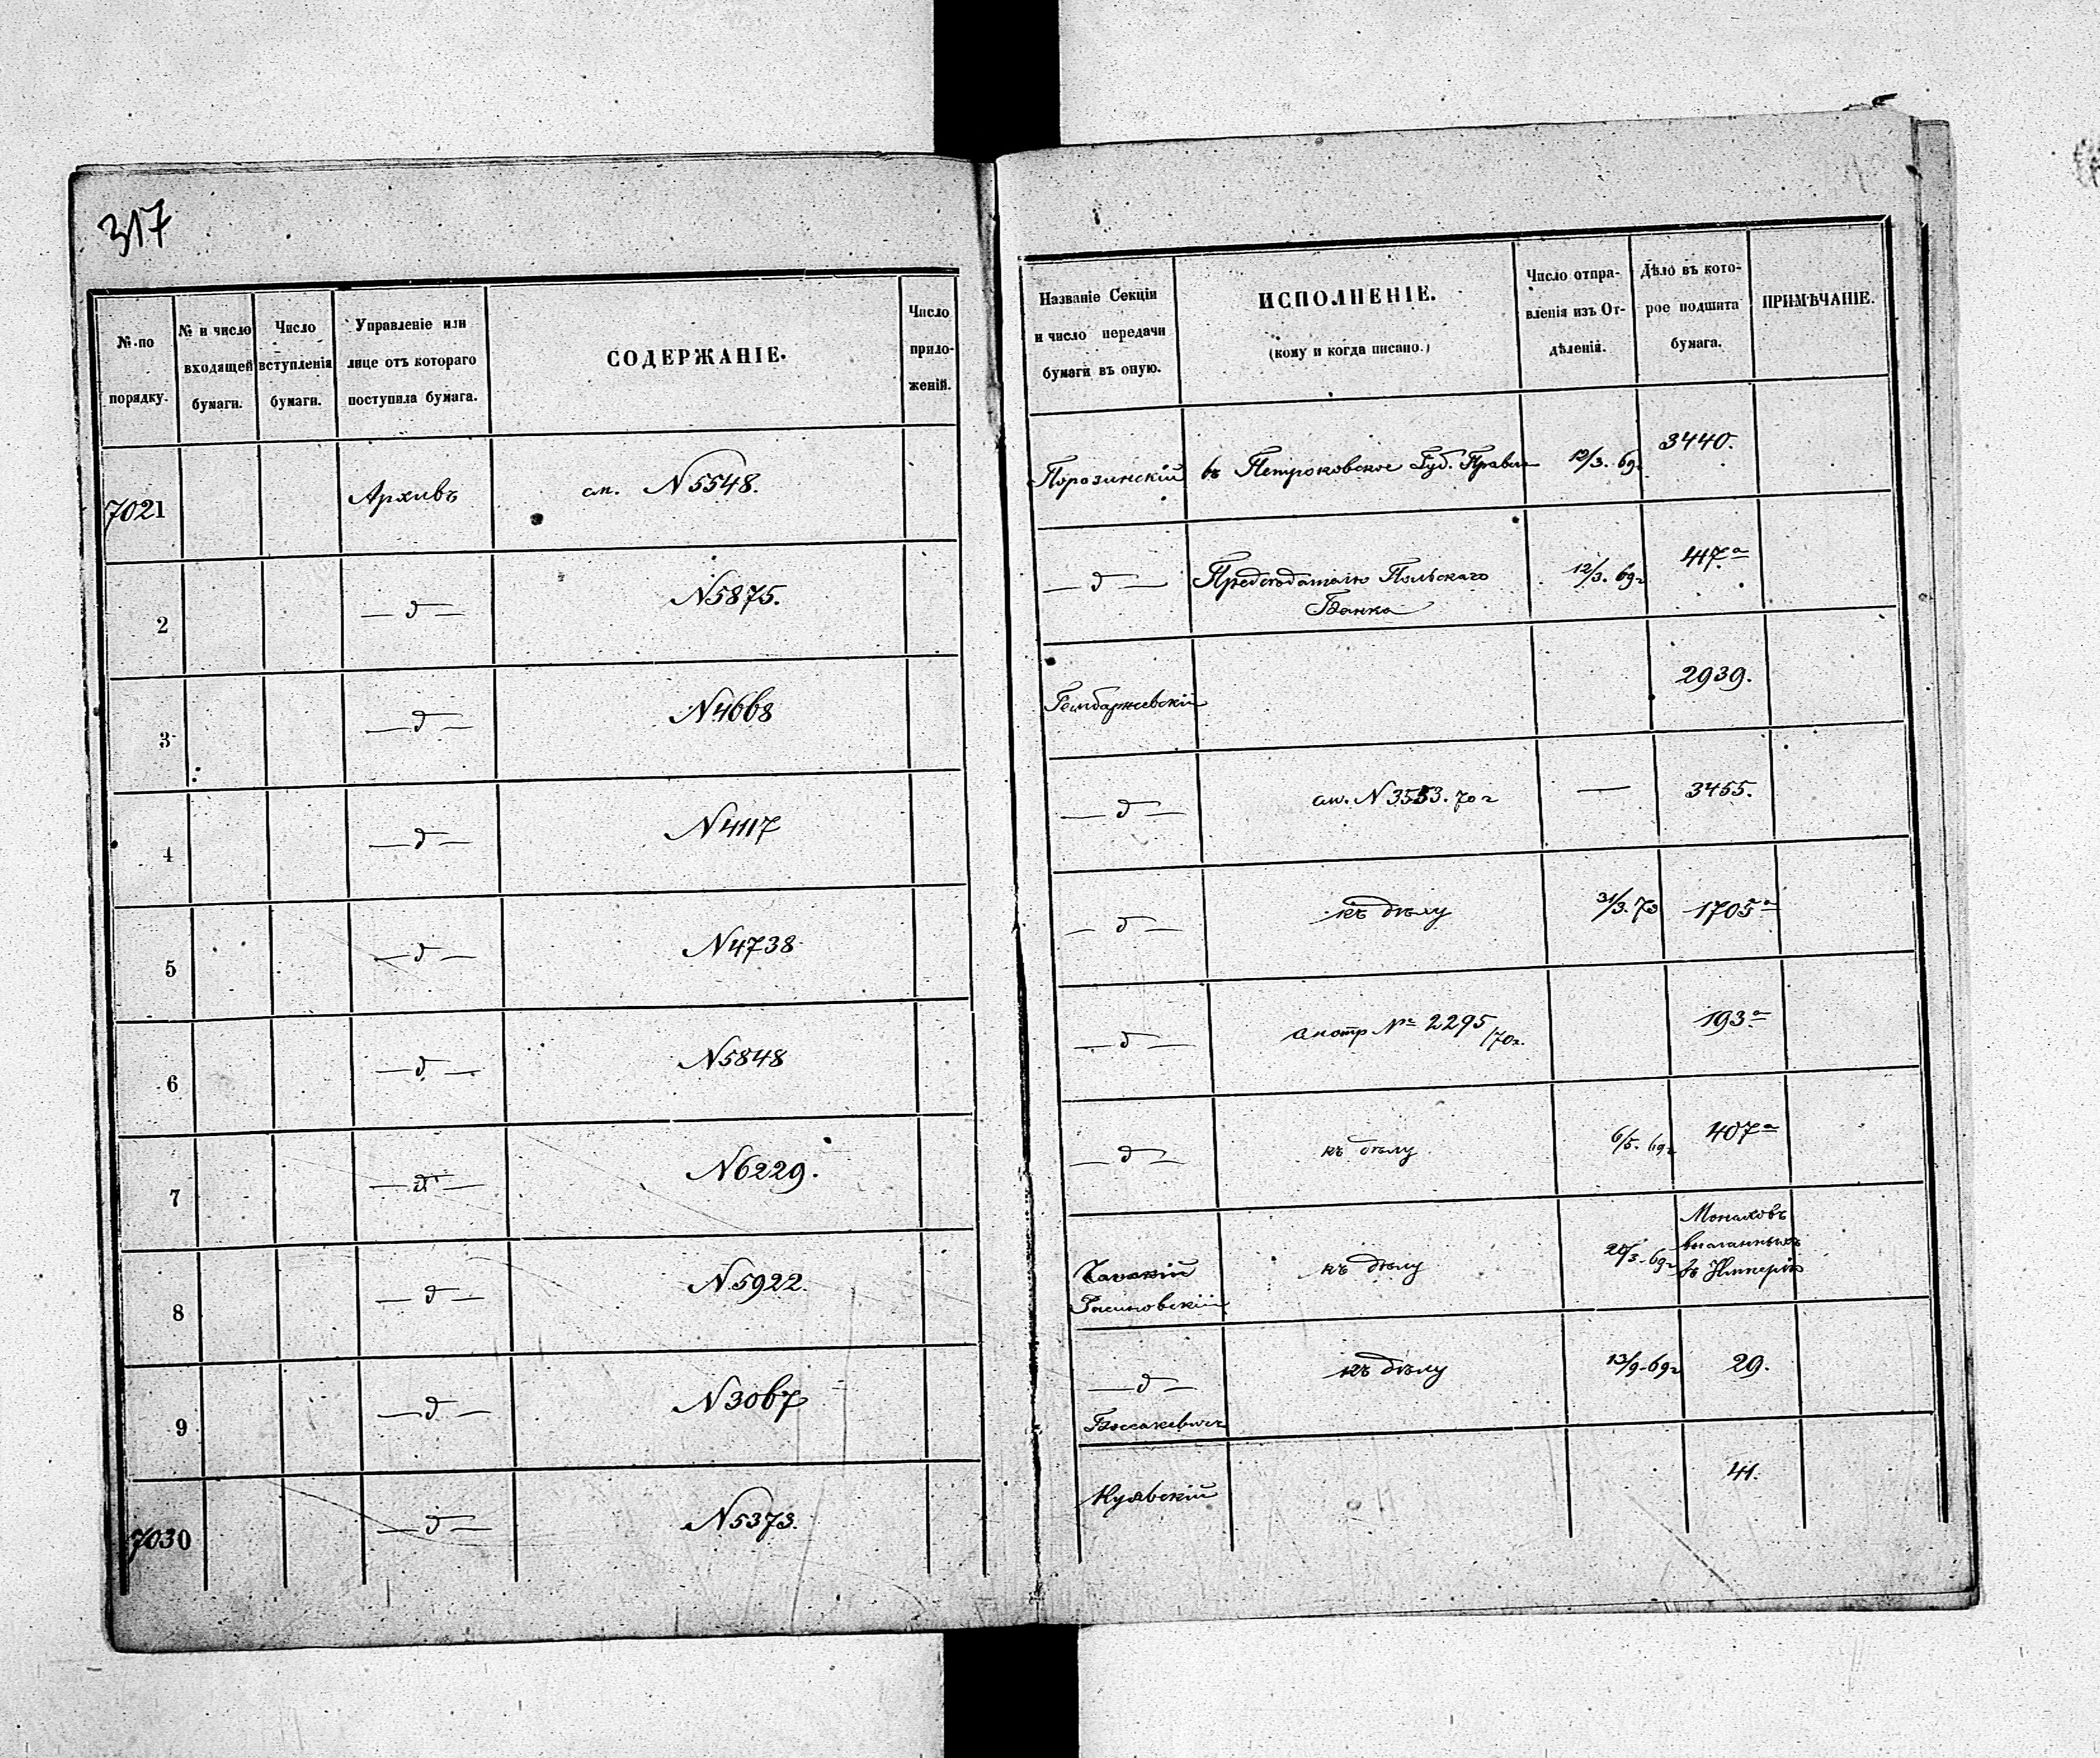 317
№ по порядку.
№ и число входящей бумаги.
Число вступленія бумаги.
Управленіе или лице отъ котораго поступила бумага.
СОДЕРЖАНІЕ.
Число приложеній.
7021 Архивъ см. N 5548.
2 — д — N 5875.
3 — д — N 4668
4 — д — N 4117
5 — д — N 4738
6 — д — N 5848
7 — д — N 6229.
8 — д — N 5922.
9 — д — N 3067
7030 — д — N 5373.
Названіе Секціи и число передачи бумаги въ оную.
ИСПОЛНЕНІЕ.
(кому и когда писано.)
Число отправленія изъ Отдѣленій.
Дѣло въ которое подшита бумага.
ПРИМѢЧАНІЕ.
Порозинскій въ Петроковское Губ. Правл 12/3. 69г 3440.
— д — Предсѣдателю Польскаго 12/3. 69г 417а
Банка
Гембаржевскій 2939.
— д — см. N 3553. 70г — 3455.
— д — къ дѣлу 31/3. 73 1705а
— д — смотр № 2295/70г. 193а
— д — къ дѣлу. 6/5. 69г 407а
Монаховъ
къ дѣлу 20/3. 69г высланныхъ
въ Имперію
— д — къ дѣлу 13/9. 69г 29.
Куявскій 41.